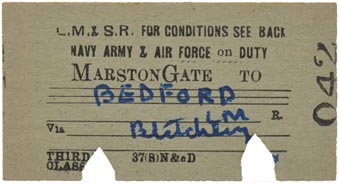 L.M.& S.R. FOR CONDITIONS SEE BACK
NAVY ARMY & AIR FORCE on DUTY
MARSTON GATE TO
BEDFORD
LM R.
Via Bletchley
THIRD CLASS 37(S)N&oD
042